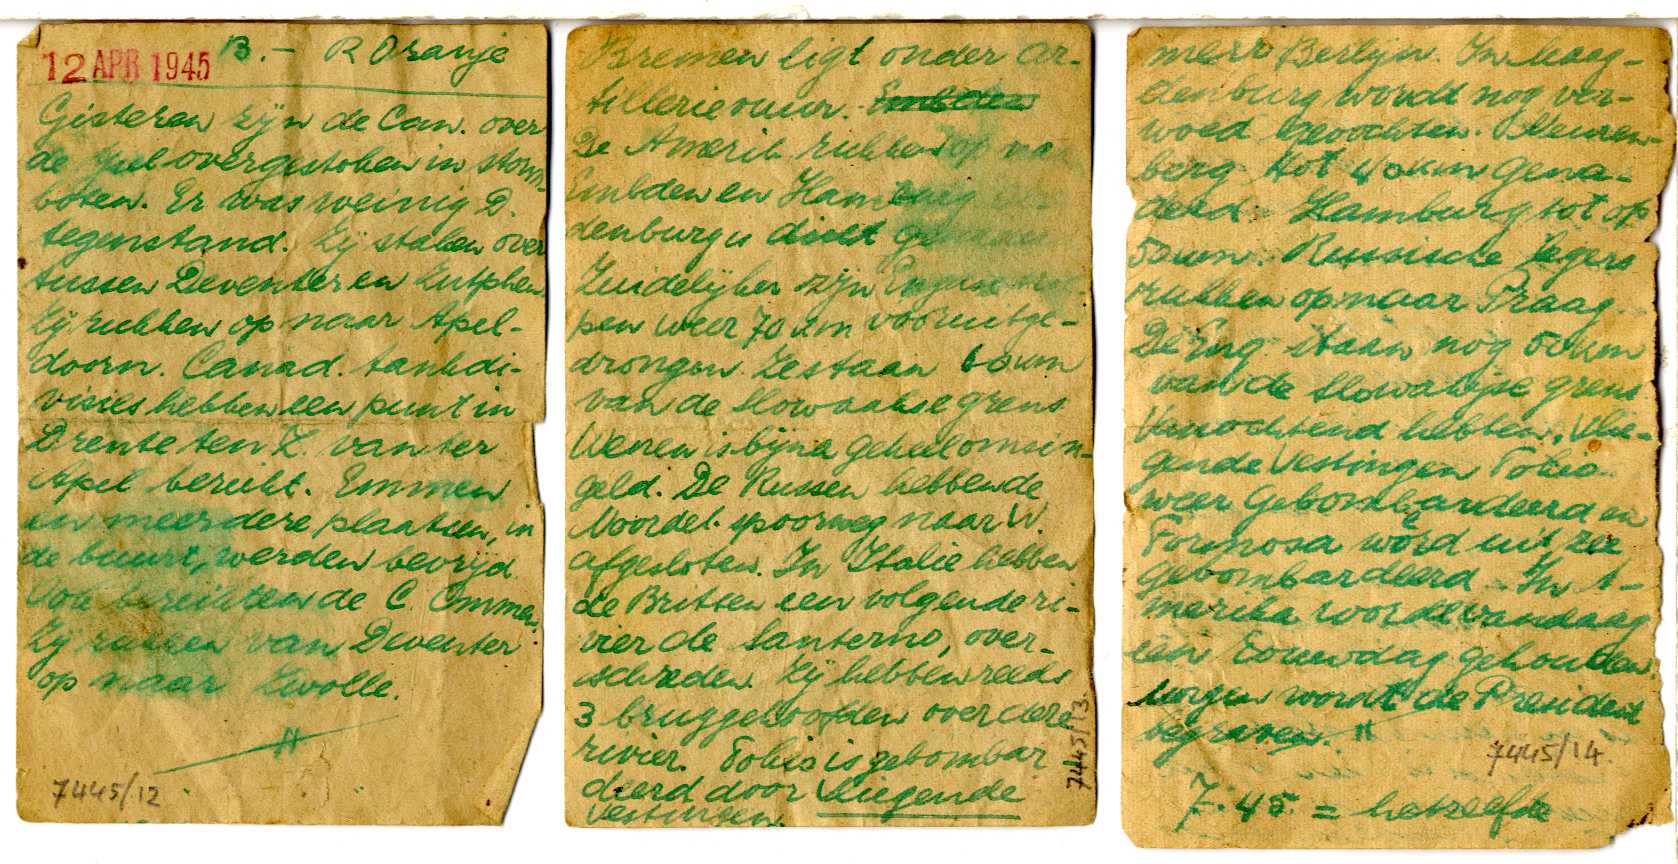 12 APR 1945
B. - R Oranje
Gisteren zijn de Can. over
de Ijsel overgestoken in storm-
boten. Er was weinig D.
tegenstand. Zij staken over
tussen Deventer en Zutphen
Zij rukken op naar Apel-
doorn. Canad. tankdi-
visies hebben een punt in
Drente ten Z. van ter
Apel bereikt. Emmen
en meerdere plaatsen, in
de buurt, werden bevrijd
Ook bereikten de C. Ommen.
Zij rukken van Deventer
op naar Zwolle.
"
7445/12
Bremen ligt onder ar-
tillerievuur. Embden
De Amerik rukken op naar
Embden en Hamburg
denburg is dicht
Zuidelijker zijn
pen weer 70 km vooruitge-
drongen. Ze staan 60 km
van de Slowaakse grens
Wenen is bijna geheel omsin-
geld. De Russen hebben de
Noordel. spoorweg naar W.
afgesloten. In Italie hebben
de Britten een volgende ri-
vier de Santerno, over-
schreden. Zij hebben reeds
3 bruggehoofden over deze
rivier. Tokio is gebombar
deerd door Vliegende
Vestingen.
7445/13
merr Berlijn. In Maag-
denburg wordt nog ver-
woed gevochten. Neuren-
berg tot 40 km gena-
derd - Hamburg tot op
50 km. Russische legers
rukken op naar Praag
De Eng. staan nog 50 km
van de Slowakijse grens
Vanochtend hebben Vlie-
gende Vestingen Tokio
weer gebombardeerd en
Formosa word uit zee
gebombardeerd - In A-
merika wordt vandaag
een Rouwdag gehouden.
Morgen wordt de President
begraven. "
7445/14.
7.45 = hetzelfde